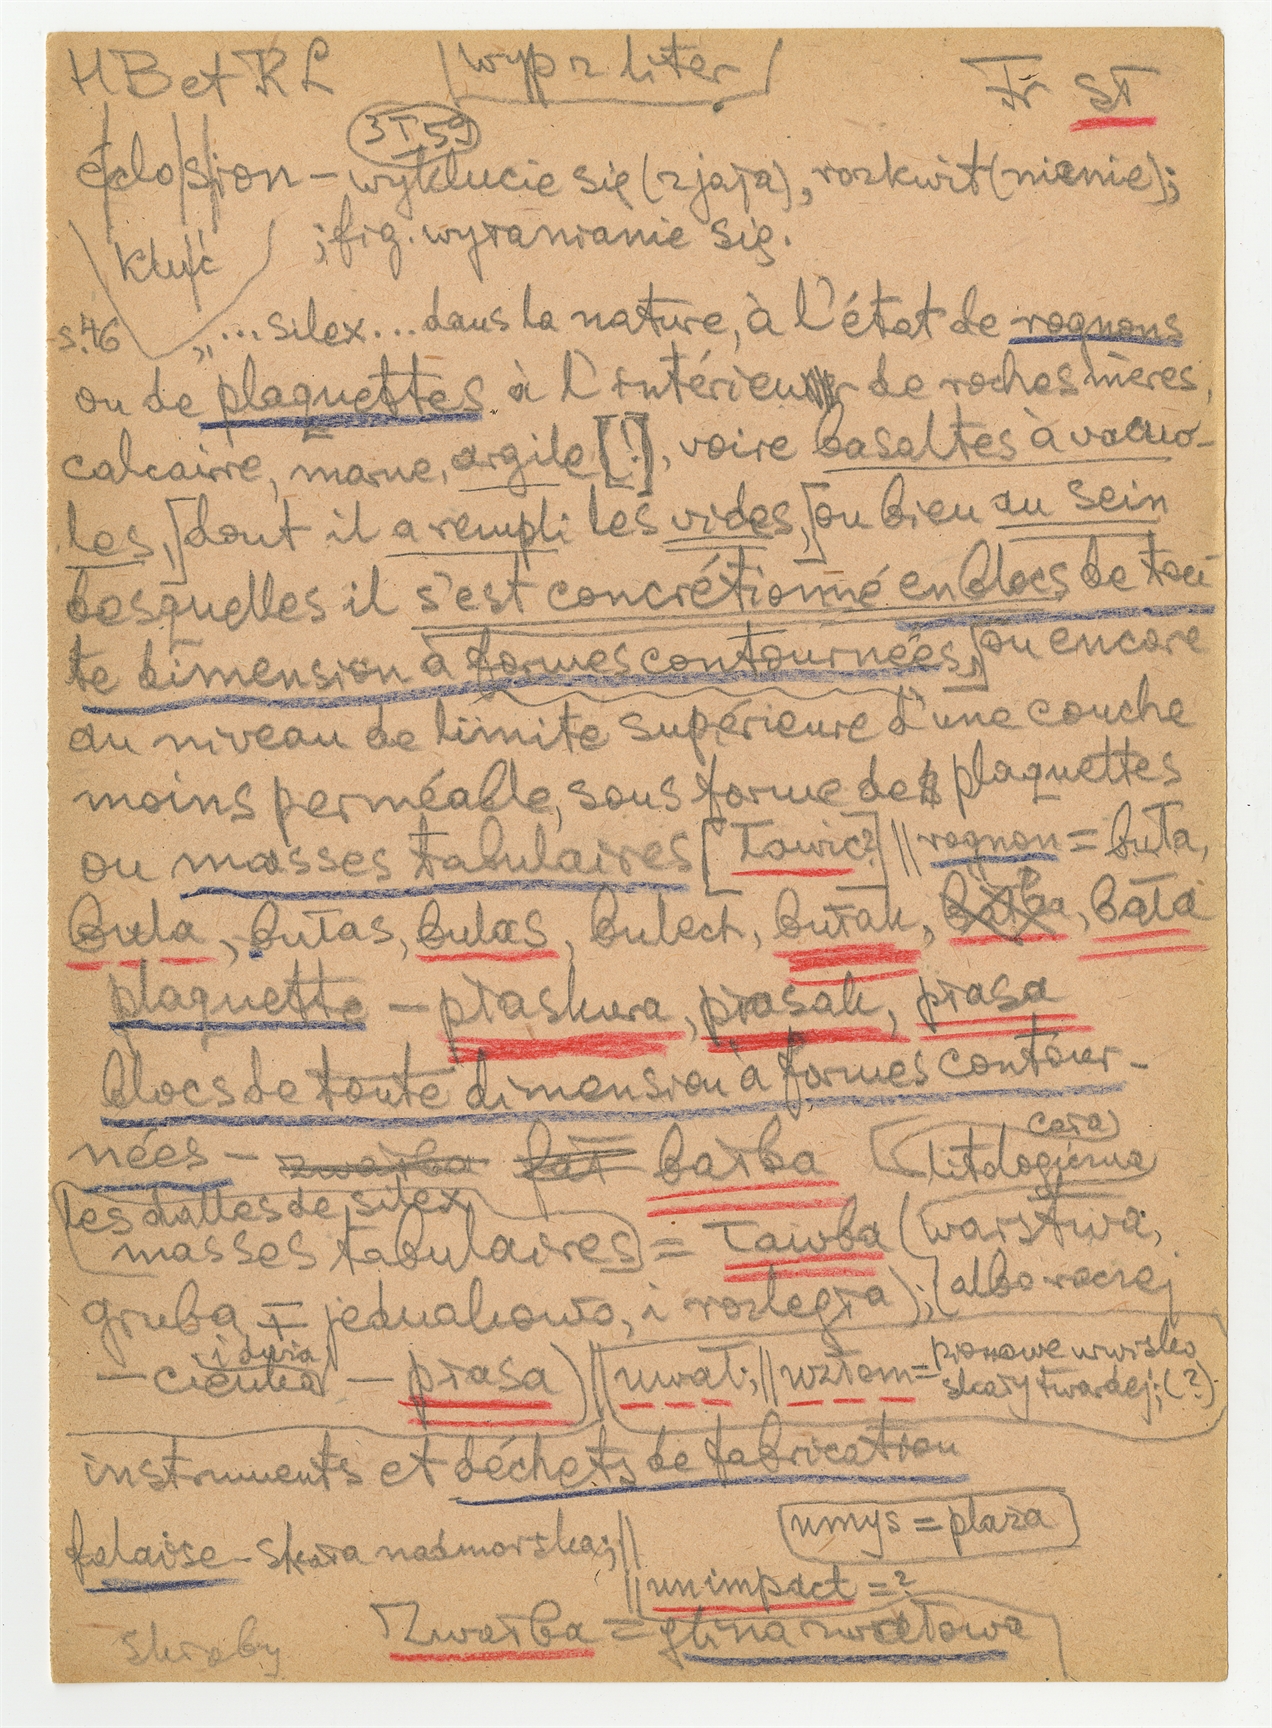 HB et RL wyp z liter Fr ST
3 I 59
éclosion – wyklucie się (z jaja), rozkwit(nienie);
; fig. wyłanianie się.
kluć
s. 46 „... silex... dans la nature, à l'état de rognons
ou de plaquettes à l'intérieur de roches mères,
calcaire, marne, argile [!], voire basaltes à vacuo-
les, dont il a rempli les vides, ou bien au sein
desquelles il s'est concrétionné en blocs de tou
te dimension à formes contournées, ou encore
au niveau de limite supérieure d'une couche
moins perméable, sous forme de plaquettes
ou masses tabulaires [Ławic?] || rognon = buła,
Bula, bułas, bulas, bulech, bułak, Bała
plaquette – płaskura, płasak, płasa
blocs de toute dimension à formes contour-
nées – zwałba bałba
cała
litologiczna
les dalles de silex
masses tabulaires = Ławba (warstwa,
gruba ± jednakowo, i rozległa); albo raczej
i duża
– cienka – płasa) || uwał; || wzłom = pionowe urwisko
skały twardej; (?)
instruments et déchets de fabrication
umys = plaża
falaise – skała nadmorska; ||
|| un impact = ?
Zwałba = glina zwałowa
skraby